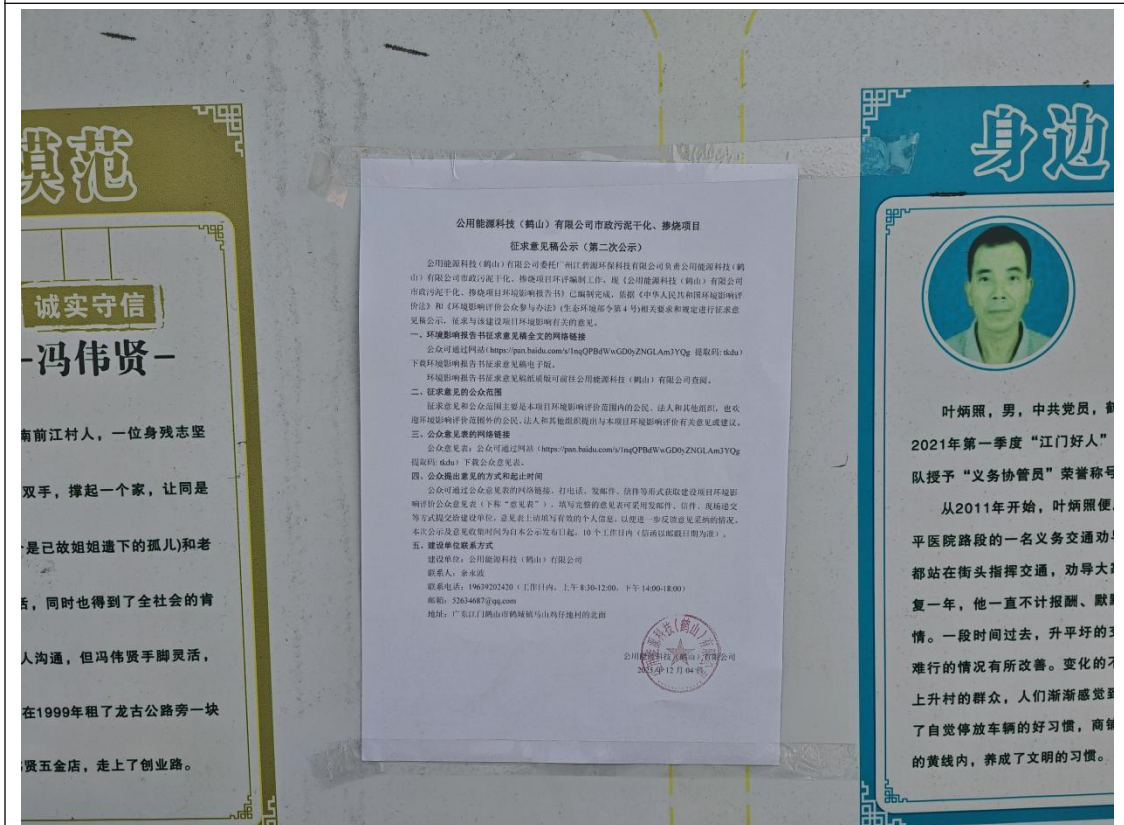 模范
诚实守信
-冯伟贤-
南前江村人，一位身残志坚
双手，撑起一个家，让同是
是已故姐姐遗下的孤儿)和老
，同时也得到了全社会的肯
人沟通，但冯伟贤手脚灵活，
在1999年租了龙古公路旁一块
贤五金店，走上了创业路。
公用能源科技（鹤山）有限公司市政污泥干化、掺烧项目
征求意见稿公示（第二次公示）
公用能源科技（鹤山）有限公司委托广州江碧源环保科技有限公司负责公用能源科技（鹤
山）有限公司市政污泥干化、掺烧项目环评编制工作，现《公用能源科技（鹤山）有限公司
市政污泥干化、掺烧项目环境影响报告书》已编制完成，依据《中华人民共和国环境影响评
价法》和《环境影响评价公众参与办法》(生态环境部令第 4 号)相关要求和规定进行征求意
见稿公示，征求与该建设项目环境影响有关的意见。
一、环境影响报告书征求意见稿全文的网络链接
公众可通过网站（https://pan.baidu.com/s/1nqQPBdWwGD0yZNGLAm3YQg 提取码: tkdu）
下载环境影响报告书征求意见稿电子版。
环境影响报告书征求意见稿纸质版可前往公用能源科技（鹤山）有限公司查阅。
二、征求意见的公众范围
征求意见和公众范围主要是本项目环境影响评价范围内的公民、法人和其他组织，也欢
迎环境影响评价范围外的公民、法人和其他组织提出与本项目环境影响评价有关意见或建议。
三、公众意见表的网络链接
公众意见表：公众可通过网站（https://pan.baidu.com/s/1nqQPBdWwGD0yZNGLAm3YQg
提取码: tkdu）下载公众意见表。
四、公众提出意见的方式和起止时间
公众可通过公众意见表的网络链接、打电话、发邮件、信件等形式获取建设项目环境影
响评价公众意见表（下称“意见表”），填写完整的意见表可采用发邮件、信件、现场递交
等方式提交给建设单位，意见表上请填写有效的个人信息，以便进一步反馈意见采纳的情况。
本次公示及意见收集时间为自本公示发布日起，10 个工作日内（信函以邮戳日期为准）。
五、建设单位联系方式
建设单位：公用能源科技（鹤山）有限公司
联系人：余永波
联系电话：19639202420（工作日内，上午 8:30-12:00，下午 14:00-18:00）
邮箱：52634687@qq.com
地址：广东江门鹤山市鹤城镇马山鸡仔地村的北面
公用能源科技（鹤山）有限公司
2025 年 12 月 04 日
身边
叶炳照，男，中共党员，鹤
2021年第一季度“江门好人”
队授予“义务协管员”荣誉称号
从2011年开始，叶炳照便
平医院路段的一名义务交通劝
都站在街头指挥交通，劝导大
复一年，他一直不计报酬、默
情。一段时间过去，升平圩的
难行的情况有所改善。变化的不
上升村的群众，人们渐渐感觉到
了自觉停放车辆的好习惯，商铺
的黄线内，养成了文明的习惯。